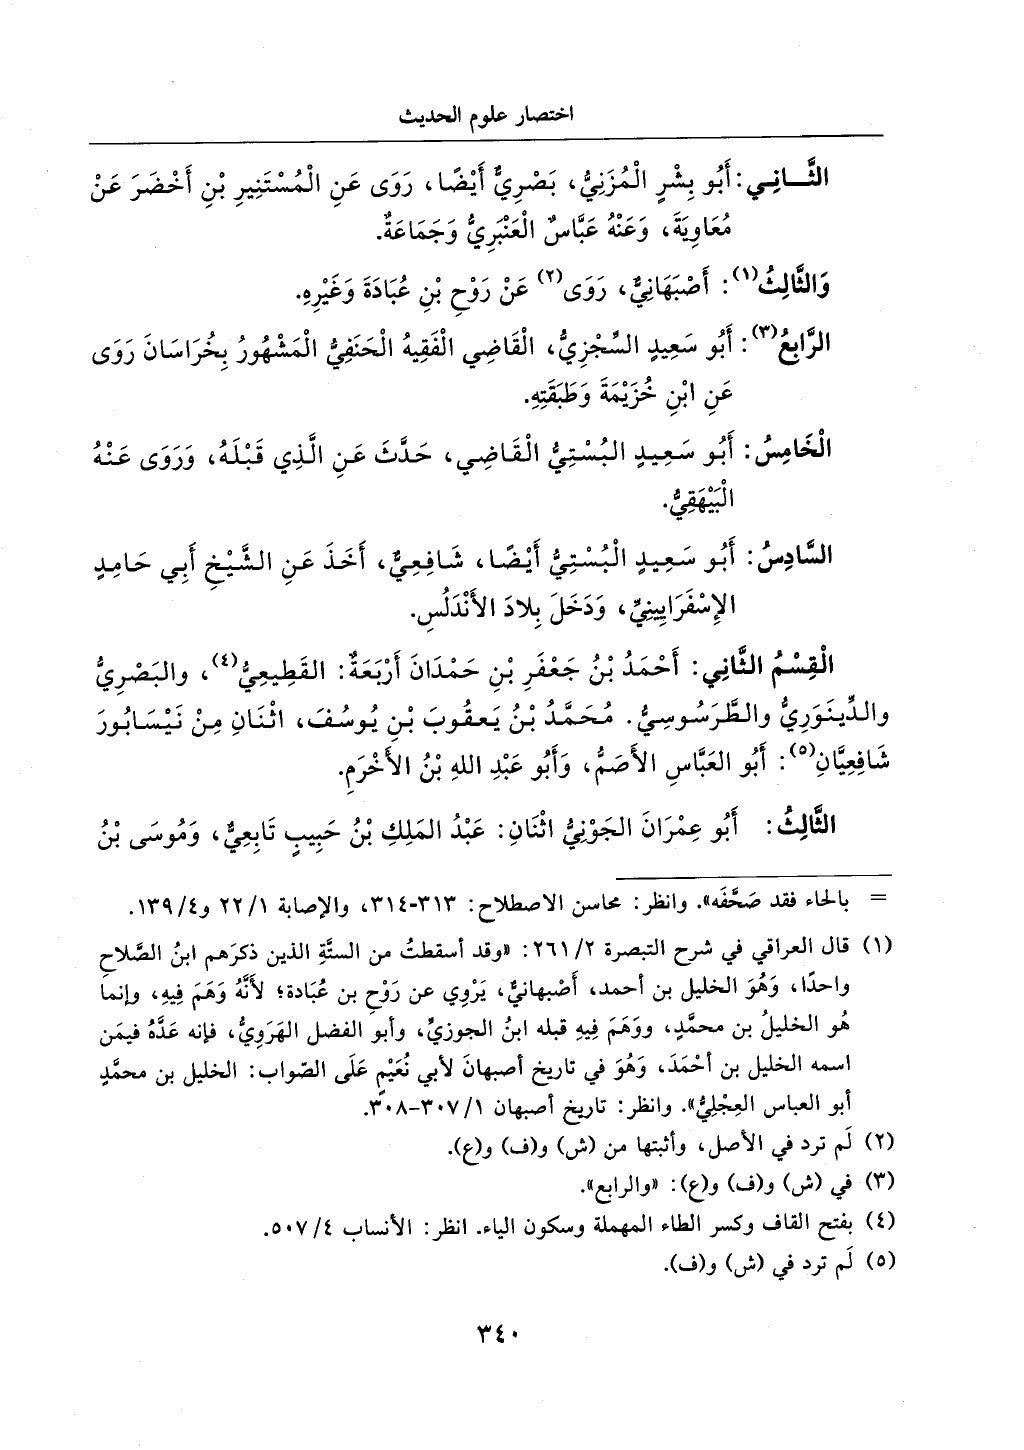 اختصار علوم الحديث
الثَّـــانِـي: أَبُو بِشْرٍ الْمُزَنِيُّ، بَصْرِيٌّ أَيْضًا، رَوَى عَنِ الْمُسْتَنِيرِ بْنِ أَخْضَرَ عَنْ
مُعَاوِيَةَ، وَعَنْهُ عَبَّاسٌ الْعَنْبَرِيُّ وَجَمَاعَةٌ.
وَالثَّالِثُ(١): أَصْبَهَانِيٌّ، رَوَى(٢) عَنْ رَوْحِ بْنِ عُبَادَةَ وَغَيْرِهِ.
الرَّابِعُ(٣): أَبُو سَعِيدٍ السِّجْزِيُّ، الْقَاضِي الْفَقِيهُ الْحَنَفِيُّ الْمَشْهُورُ بِخُرَاسَانَ رَوَى
عَنِ ابْنِ خُزَيْمَةَ وَطَبَقَتِهِ.
الْخَامِسُ: أَبُو سَعِيدٍ البُسْتِيُّ الْقَاضِي، حَدَّثَ عَنِ الَّذِي قَبْلَهُ، وَرَوَى عَنْهُ
الْبَيْهَقِيُّ.
السَّادِسُ: أَبُو سَعِيدٍ الْبُسْتِيُّ أَيْضًا، شَافِعِيٌّ، أَخَذَ عَنِ الشَّيْخِ أَبِي حَامِدٍ
الإِسْفَرَايِينِيِّ، وَدَخَلَ بِلادَ الأَنْدَلُسِ.
الْقِسْمُ الثَّانِي: أَحْمَدُ بْنُ جَعْفَرِ بْنِ حَمْدَانَ أَرْبَعَةٌ: القَطِيعِيُّ(٤)، والبَصْرِيُّ
والدِّينَوَرِيُّ والطَّرَسُوسِيُّ. مُحَمَّدُ بْنُ يَعقُوبَ بْنِ يُوسُفَ، اثْنَانِ مِنْ نَيْسَابُورَ
شَافِعِيَّانِ(٥): أَبُو العَبَّاسِ الأَصَمُّ، وَأَبُو عَبْدِ اللهِ بْنُ الأَخْرَمِ.
الثَّالِثُ: أَبُو عِمْرَانَ الجَوْنِيُّ اثْنَانِ: عَبْدُ المَلِكِ بْنُ حَبِيبٍ تَابِعِيٌّ، وَمُوسَى بْنُ
= بالحاء فقد صَحَّفَه». وانظر: محاسن الاصطلاح: ٣١٣-٣١٤، والإصابة ٢٢/١ و١٣٩/٤.
(١) قال العراقي في شرح التبصرة ٢٦١/٢: «وقد أسقطتُ من الستَّةِ الذين ذكرَهم ابنُ الصَّلاحِ
واحدًا، وَهُوَ الخليل بن أحمد، أَصْبهانيٌّ، يَرْوِي عن رَوْحِ بن عُبَادة؛ لأَنَّهُ وَهَمَ فِيهِ، وإنما
هُو الخليلُ بن محمَّدٍ، ووَهَمَ فِيهِ قبله ابنُ الجوزيِّ، وأبو الفضل الهَرَوِيُّ، فإنه عَدَّهُ فيمَن
اسمه الخليل بن أحْمَدَ، وَهُوَ في تاريخ أصبهانَ لأبي نُعَيْمٍ عَلَى الصّواب: الخليل بن محمَّدٍ
أبو العباس العِجْلِيُّ». وانظر: تاريخ أصبهان ٣٠٧/١-٣٠٨.
(٢) لَم ترد في الأصل، وأثبتها من (ش) و(ف) و(ع).
(٣) في (ش) و(ف) و(ع): «والرابع».
(٤) بفتح القاف وكسر الطاء المهملة وسكون الياء. انظر: الأنساب ٥٠٧/٤.
(٥) لَم ترد في (ش) و(ف).
٣٤٠